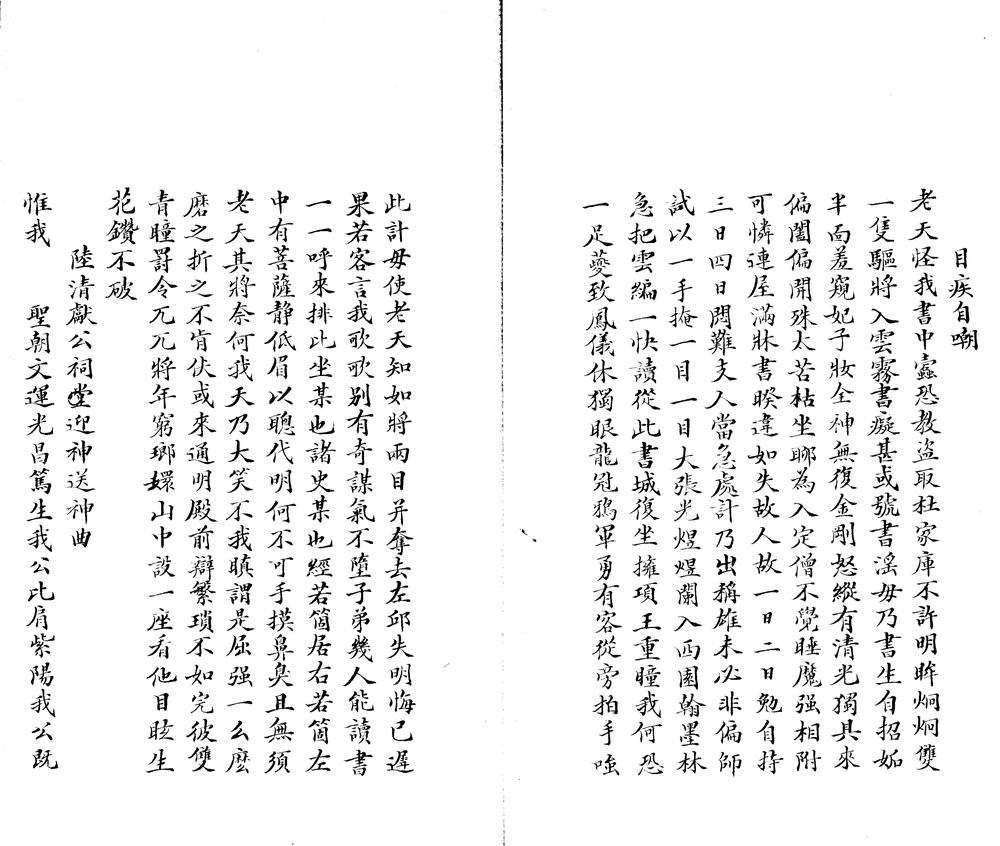 目疾自嘲
老天怪我書中蠹恐教盜取杜家庫不許明眸炯炯雙
一隻驅將入雲霧書癡甚或號書淫毋乃書生自招妬
半面羞窺妃子妝全神無復金剛怒縱有清光獨具來
偏闔偏開殊太苦枯坐聊為入定僧不覺睡魔强相附
可憐連屋滿牀書暌違如失故人故一日二日勉自持
三日四日悶難支人當急處計乃出稱雄未必非偏師
試以一手掩一目一目大張光煜煜闌入西園翰墨林
急把雲編一快讀從此書城復坐擁項王重瞳我何恐
一足夔致鳳儀休獨眼龍冠鴉軍勇有客從旁拍手嗤
此計毋使老天知如將兩目并奪去左邱失明悔已遲
果若客言我歌歌别有奇謀氣不墮子弟幾人能讀書
一一呼來排此坐某也諸史某也經若箇居右若箇左
中有菩薩静低眉以聰代明何不可手摸鼻臭且無須
老天其將奈何我天乃大笑不我瞋謂是屈强一么麽
磨之折之不肯伏或來通明殿前辯繁瑣不如完彼雙
青瞳罸令兀兀將年窮瑯嬛山中設一座看他目眩生
花鑽不破
陸清獻公祠堂迎神送神曲
惟我　聖朝文運光昌篤生我公比肩紫陽我公既